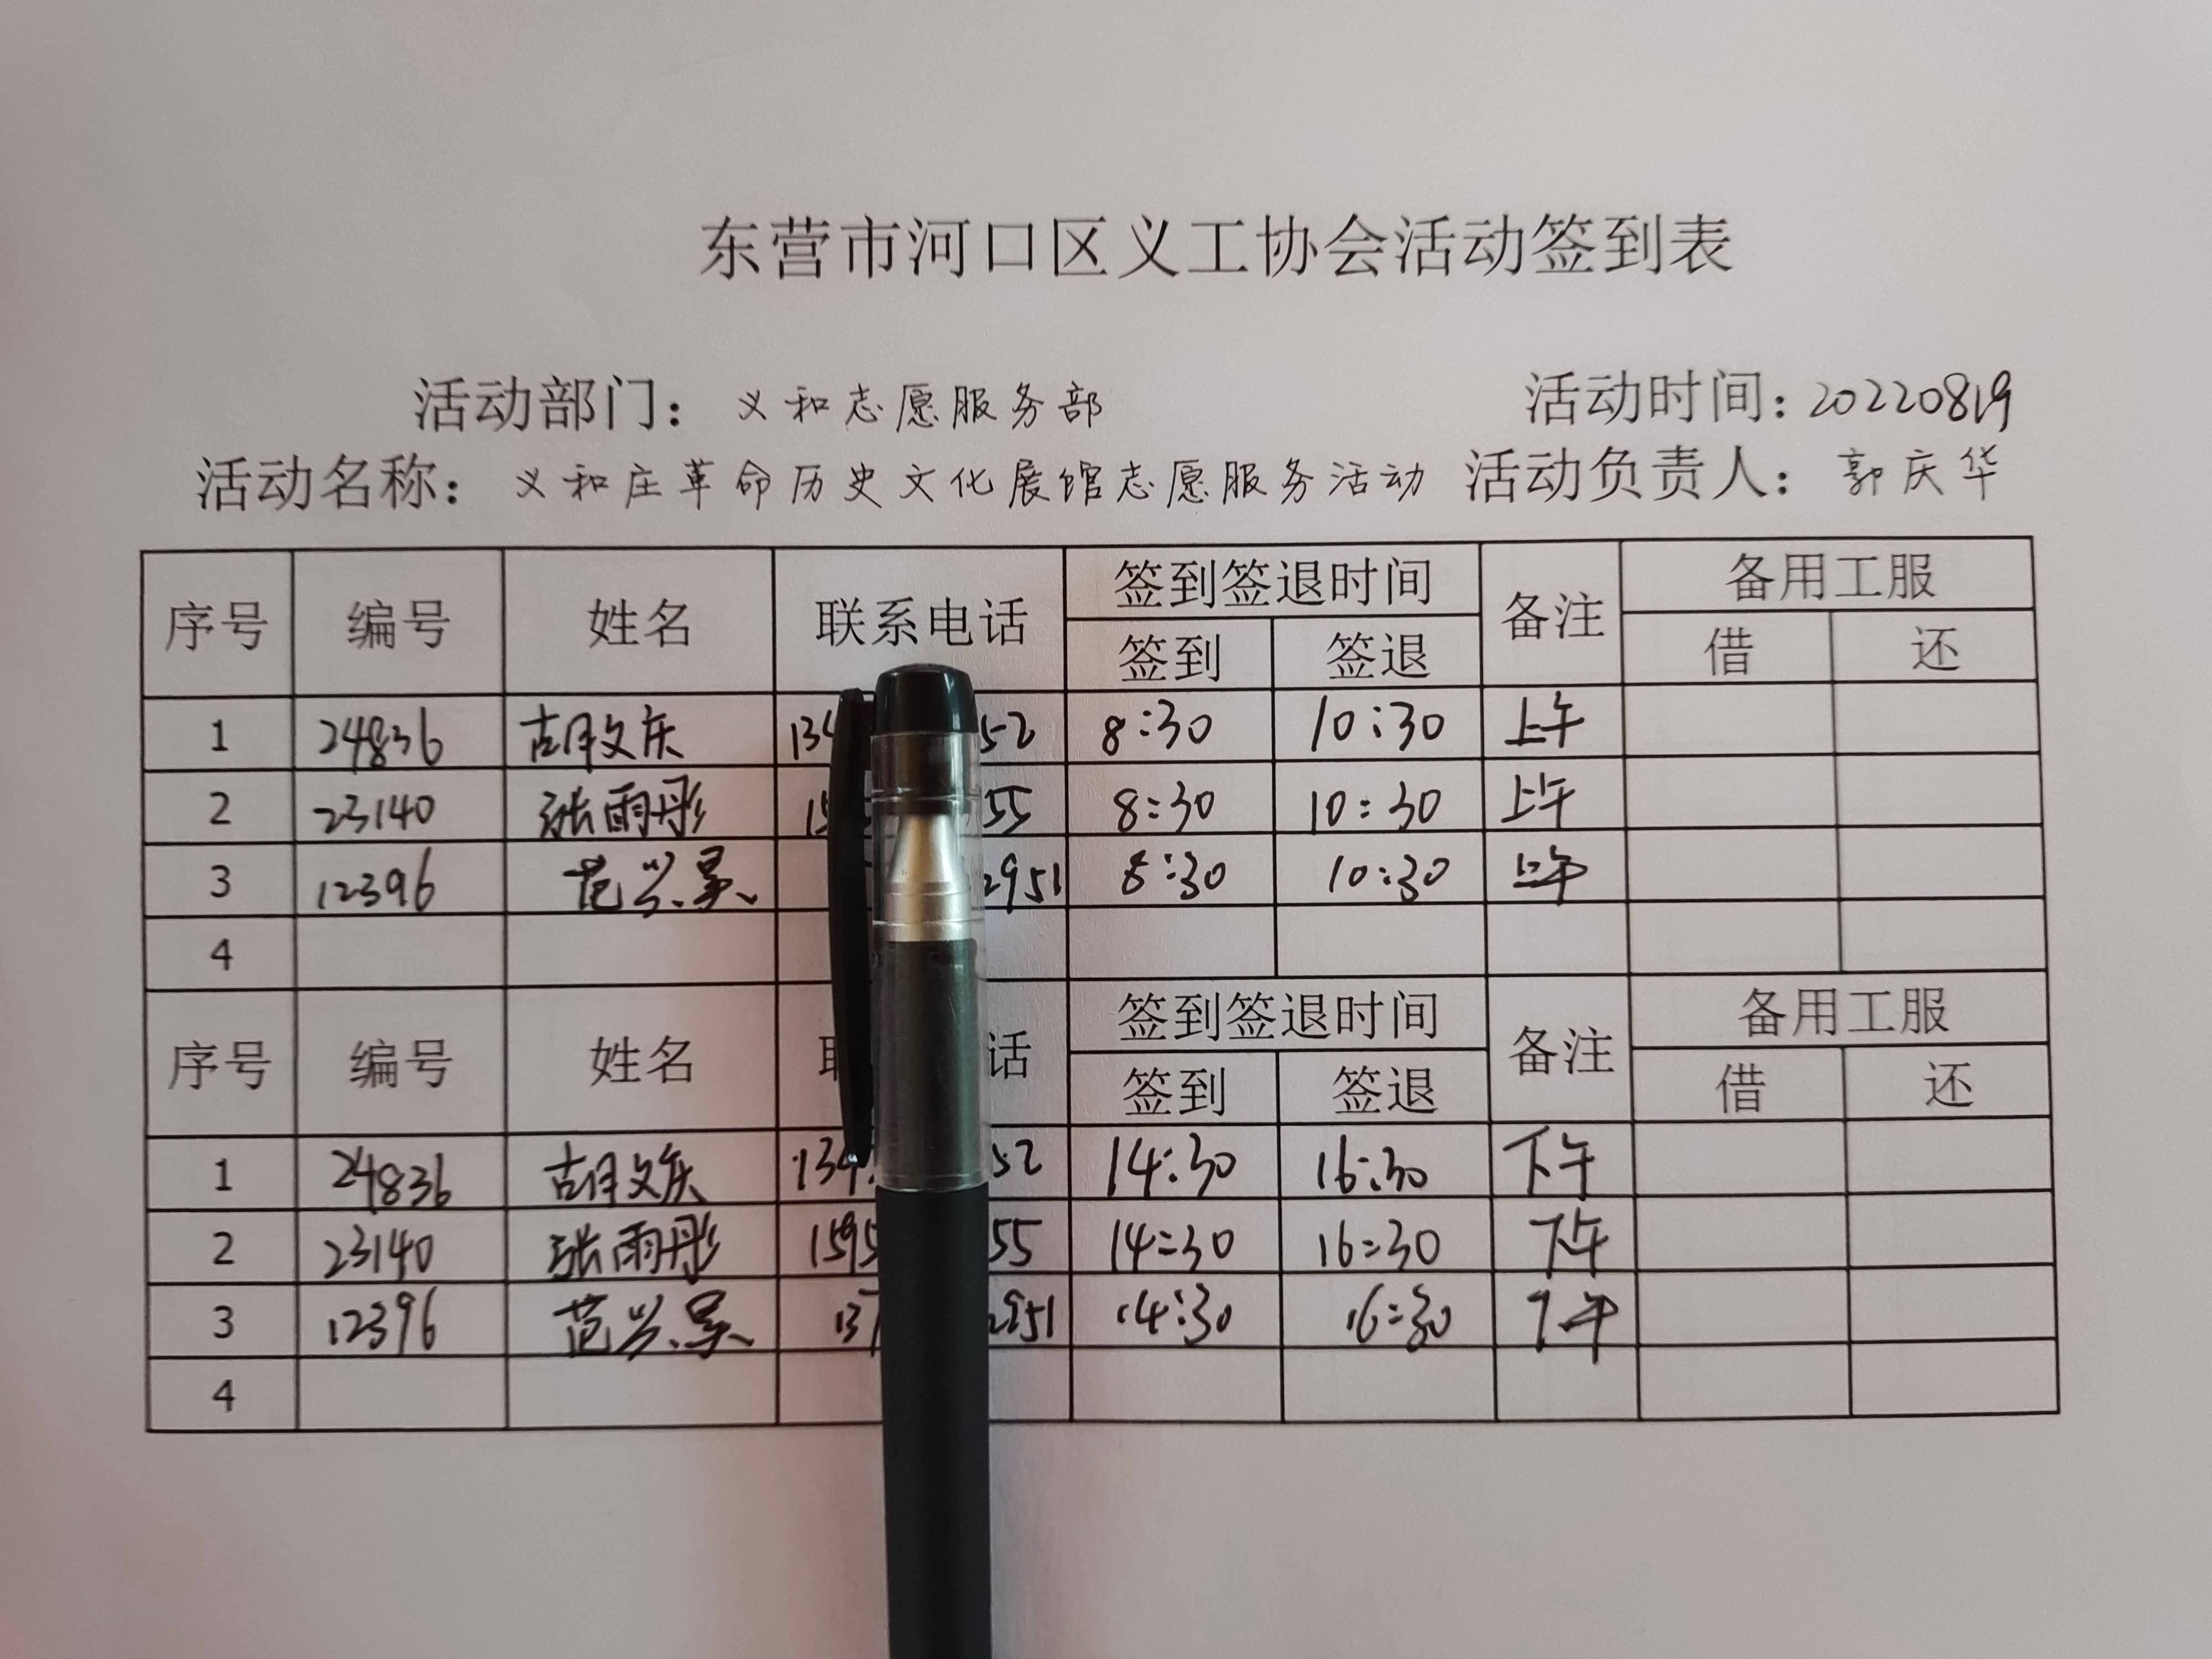 东营市河口区义工协会活动签到表
活动部门：义和志愿服务部 活动时间：20220819
活动名称：义和庄革命历史文化展馆志愿服务活动 活动负责人：郭庆华
序号 编号 姓名 联系电话 签到签退时间 备注 备用工服
签到 签退 借 还
1 24836 胡文庆 134 52 8:30 10:30 上午
2 23140 张雨彤 15 55 8:30 10:30 上午
3 12396 范兴 2951 8:30 10:30 上午
4
序号 编号 姓名 话 签到签退时间 备注 备用工服
签到 签退 借 还
1 24836 胡文庆 134 52 14:30 16:30 下午
2 23140 张雨彤 1595 55 14:30 16:30 下午
3 12396 范兴 137 2951 14:30 16:30 下午
4